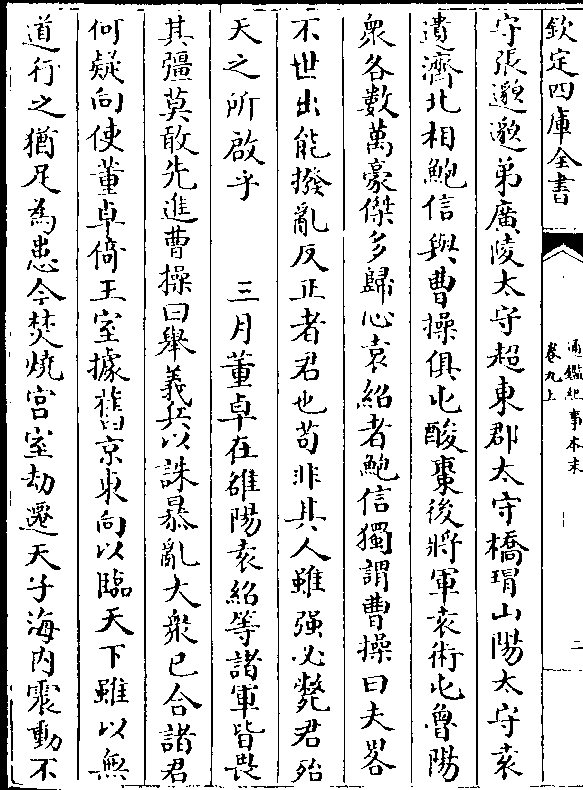 欽定四庫全書
通鑑紀事本末
卷九上
二
守張邈邈弟廣陵太守超東郡太守橋瑁山陽太守袁
遺濟北相鮑信與曹操俱屯酸棗後將軍袁術屯魯陽
衆各數萬豪傑多歸心袁紹者鮑信獨謂曹操曰夫畧
不世出能撥亂反正者君也苟非其人雖强必斃君殆
天之所啟乎　　三月董卓在雒陽袁紹等諸軍皆畏
其彊莫敢先進曹操曰舉義兵以誅暴亂大衆已合諸君
何疑向使董卓倚王室據舊京東向以臨天下雖以無
道行之猶足為患今焚燒宫室劫遷天子海内震動不